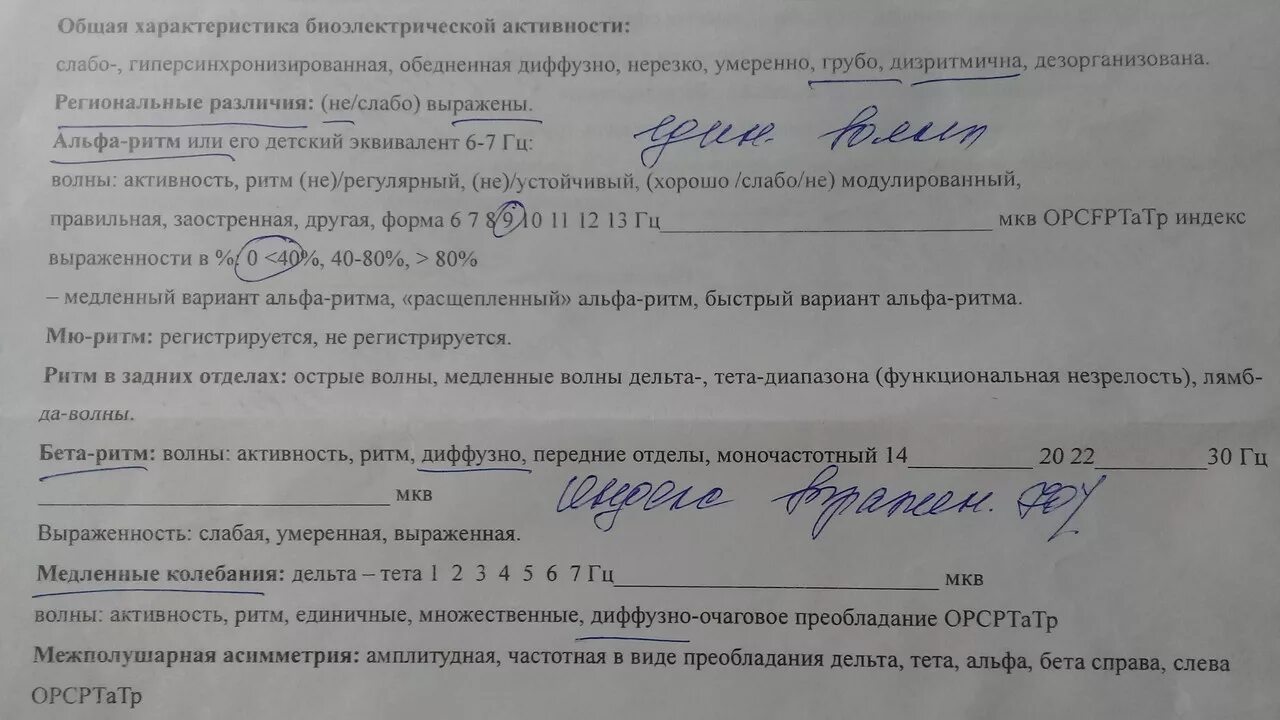 Общая характеристика биоэлектрической активности:
слабо-, гиперсинхронизированная, обедненная диффузно, нерезко, умеренно, грубо, дизритмична, дезорганизована.
Региональные различия: (не/слабо) выражены.
Альфа-ритм или его детский эквивалент 6-7 Гц: един. волны
волны: активность, ритм (не)/регулярный, (не)/устойчивый, (хорошо /слабо/не) модулированный,
правильная, заостренная, другая, форма 6 7 8 9 10 11 12 13 Гц мкв OPCFPTaTp индекс
выраженности в %: 0 <40%, 40-80%, > 80%
– медленный вариант альфа-ритма, «расщепленный» альфа-ритм, быстрый вариант альфа-ритма.
Мю-ритм: регистрируется, не регистрируется.
Ритм в задних отделах: острые волны, медленные волны дельта-, тета-диапазона (функциональная незрелость), лямб-
да-волны.
Бета-ритм: волны: активность, ритм, диффузно, передние отделы, моночастотный 14__________ 20 22_________30 Гц
мкв индекс выражен.
Выраженность: слабая, умеренная, выраженная.
Медленные колебания: дельта – тета 1 2 3 4 5 6 7 Гц__________ мкв
волны: активность, ритм, единичные, множественные, диффузно-очаговое преобладание ОРСРТаТр
Межполушарная асимметрия: амплитудная, частотная в виде преобладания дельта, тета, альфа, бета справа, слева
ОРСРТаТр